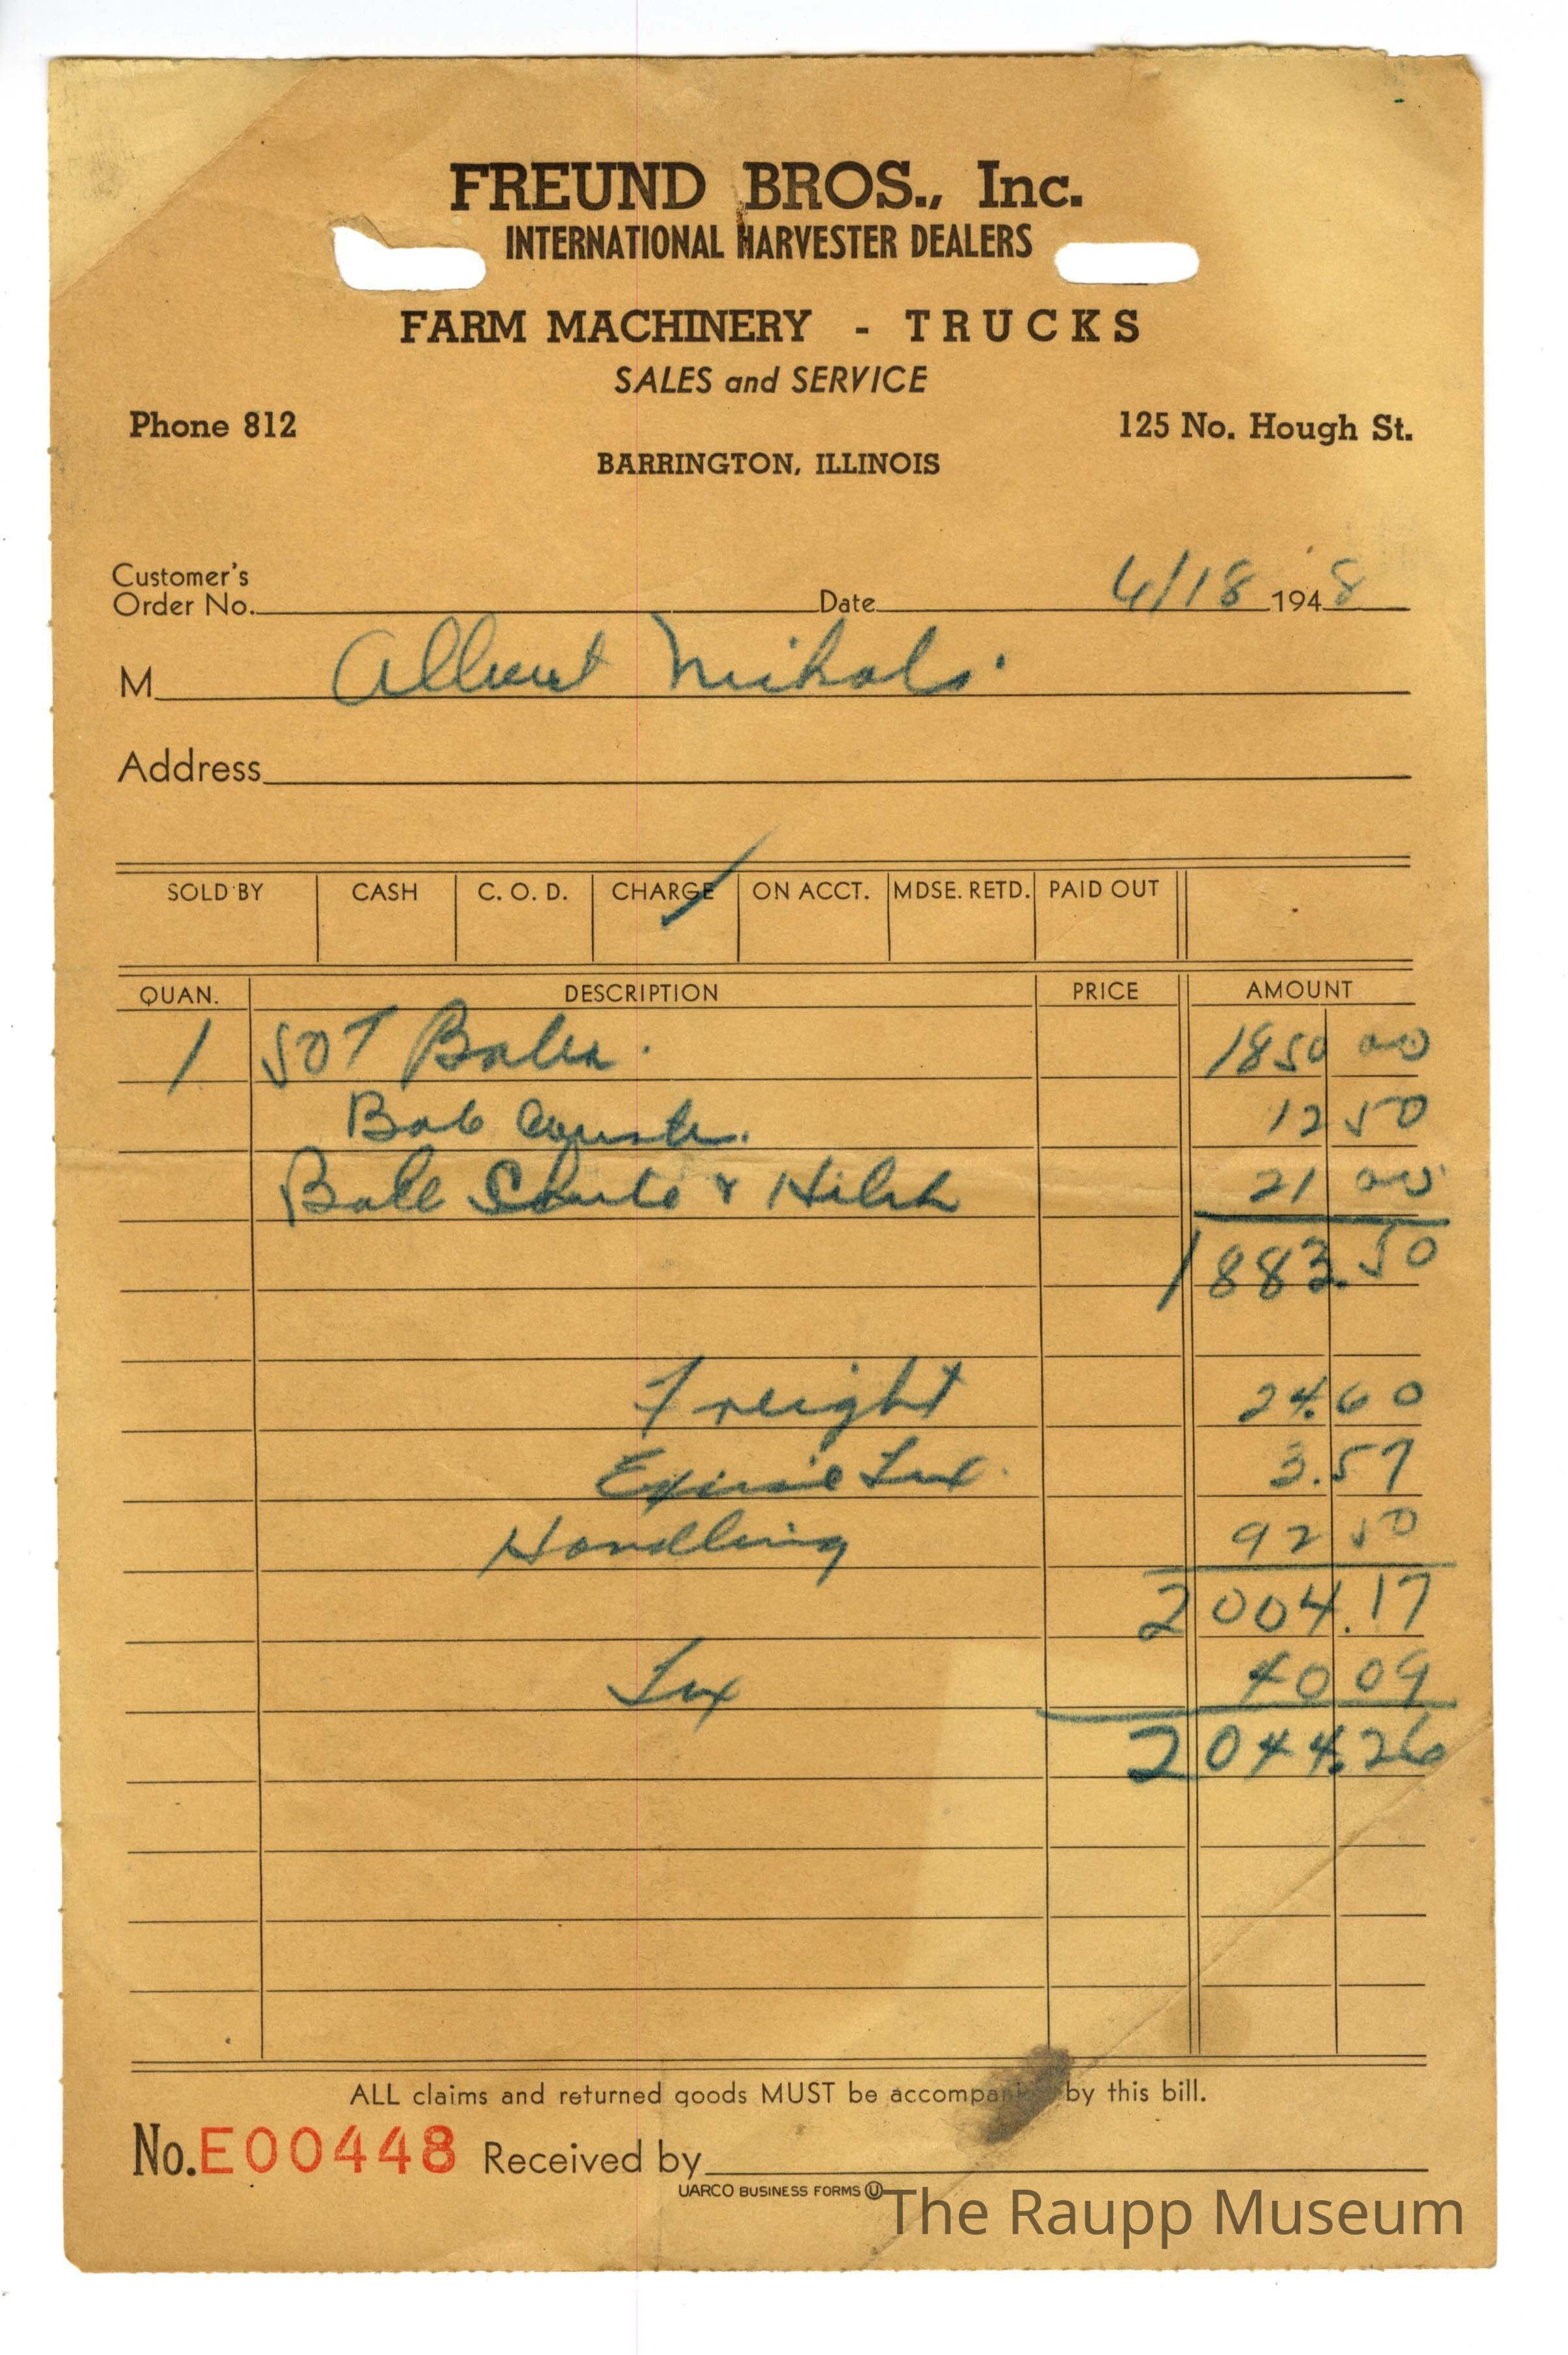 FREUND BROS., Inc.
INTERNATIONAL HARVESTER DEALERS
FARM MACHINERY - TRUCKS
SALES and SERVICE
Phone 812
125 No. Hough St.
BARRINGTON, ILLINOIS
Customer's
Order No. Date 4/18 1948
M Albert Nichols
Address
SOLD BY CASH C. O. D. CHARGE ON ACCT. MDSE. RETD. PAID OUT
QUAN. DESCRIPTION PRICE AMOUNT
1 50T Baler. 1850 00
12 50
Bale Chute & Hitch 21 00
1883.50
Freight 24.60
Excise Tax 3.57
Handling 92 50
2004.17
Tax 40 09
2044.26
ALL claims and returned goods MUST be accompanied by this bill.
No. E00448 Received by
UARCO BUSINESS FORMS U
The Raupp Museum